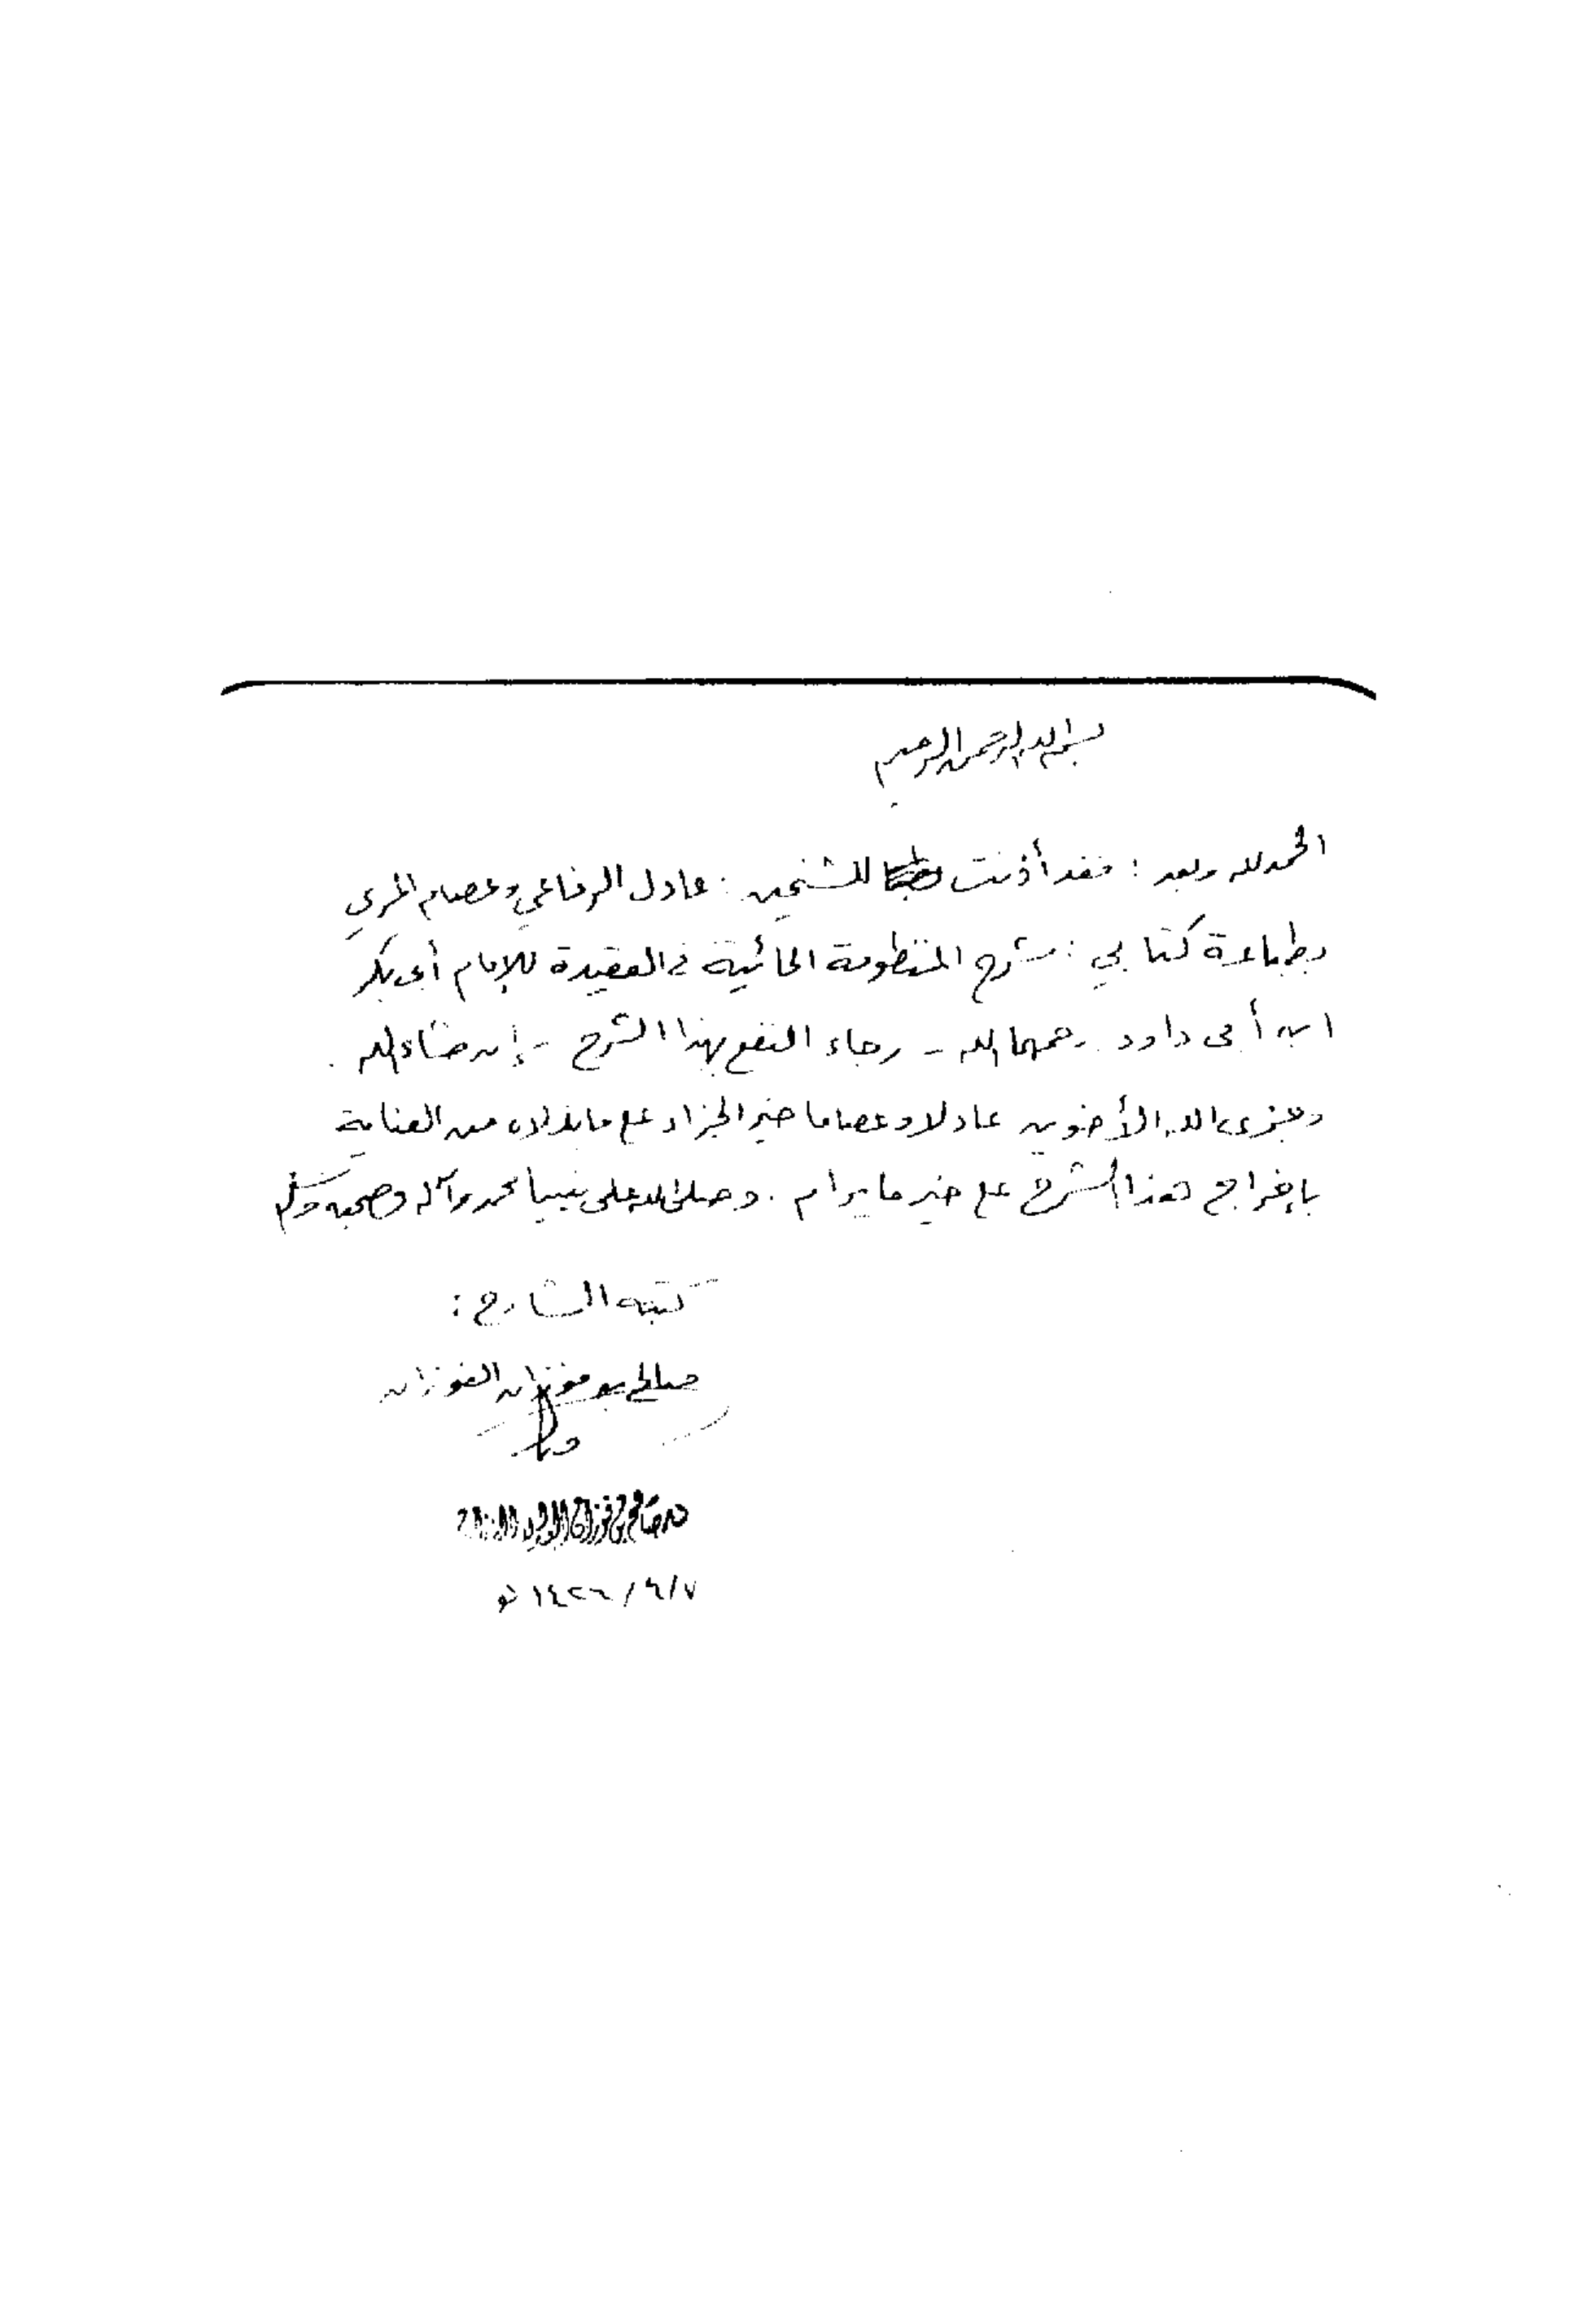 بسم الله الرحمن الرحيم
الحمد لله وبعد : فقد أذنت للشيخين : عادل الرفاعي وعصام المري
بطباعة كتابي : شرح المنظومة الحائية في العقيدة للإمام أبي بكر
ابن أبي داود رحمهما الله - رجاء النفع بهذا الشرح - إن شاء الله .
وجزى الله الأخوين عادلا وعصاما خير الجزاء على ما بذلاه من العناية
بإخراج هذا الشرح على خير ما يرام . وصلى الله على نبينا محمد وآله وصحبه وسلم
كتبه الشارح :
صالح بن فوزان الفوزان
صالح بن فوزان
٧/٦/١٤٢٦ هـ